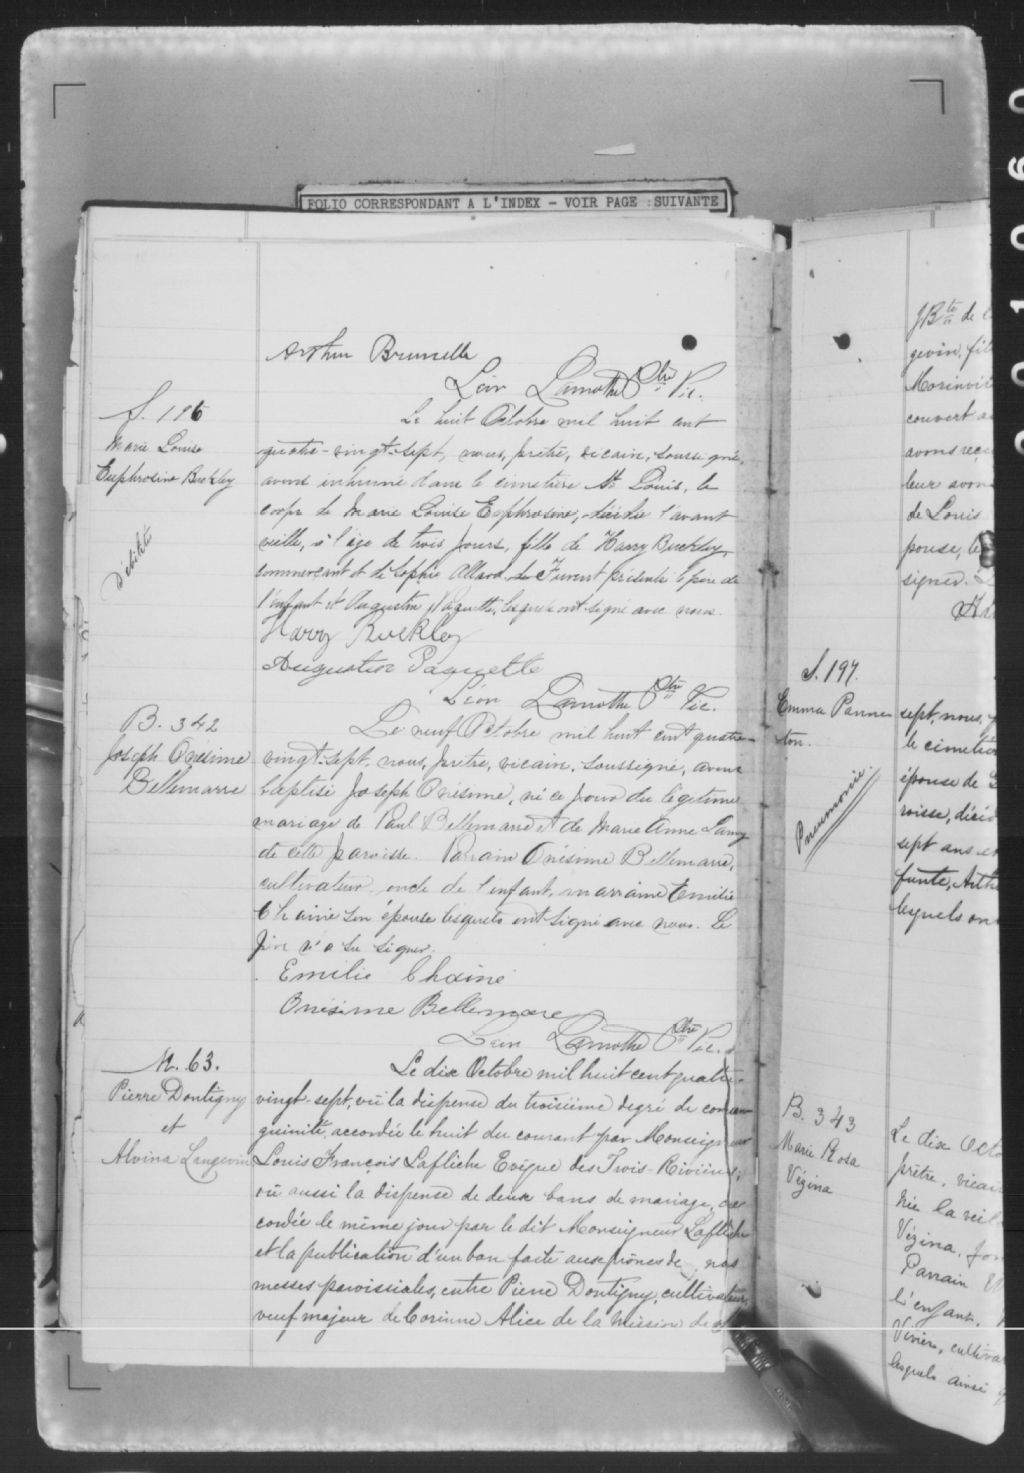 FOLIO CORRESPONDANT A L'INDEX - VOIR PAGE :SUIVANTE
Arthur Brunelle
Léon Lamothe Ptre Vic.
S. 196
Marie Louise
Euphrosine Buckley
Débilité
Le huit Octobre mil huit cent
quatre-vingt-sept, nous, prêtre, vicaire, soussigné,
avons inhumé dans le cimetière St Louis, le
corps de Marie Louise Euphrosine, décédée l'avant
veille, à l'âge de trois jours, fille de Harry Buckley,
commerçant et de Sophie Allard. Furent présents le père de
l'enfant et Augustin Paquette, lesquels ont signé avec nous.
Harry Buckley
Augustin Paquette
Léon Lamothe Ptre Vic.
B. 342
Joseph Onésime
Bellemarre
Le neuf Octobre mil huit cent quatre-
vingt-sept, nous, prêtre, vicaire, soussigné, avons
baptisé Joseph Onésime, né ce jour du légitime
mariage de Paul Bellemare et de Marie Anne Lamy
de cette paroisse. Parrain Onésime Bellemarre,
cultivateur, oncle de l'enfant, marraine Emilie
Chainé son épouse lesquels ont signé avec nous. Le
père n'a su signer.
Emilie Chainé
Onésime Bellemare
Léon Lamothe Ptre Vic.
M. 63.
Pierre Dontigny
et
Alvina Langevin
Le dix Octobre mil huit cent quatre-
vingt-sept, vu la dispense du troisième degré de consan
guinité, accordée le huit du courant par Monseigneur
Louis François Laflèche Evêque des Trois-Rivières,
vu aussi la dispense de deux bans de mariage, ac
cordée le même jour par le dit Monseigneur Laflèche
et la publication d'un ban faite aux prônes de nos
messes paroissiales, entre Pierre Dontigny, cultivateur,
veuf majeur de Corinne Alice de la mission de
JBte de
gevin, fil
Morinvil
couvert a
avons reçu
leur avon
de Louis
pouse, le
signer.
S. 197.
Emma Panne
ton.
Pneumonie
sept, nous, p
le cimetiè
épouse de
roisse, décéd
sept ans et
funte, Arth
lesquels on
B. 343
Marie Rosa
Vézina
Le dix Octo
prêtre, vicair
née la veil
Vézina, jou
Parrain
l'enfant,
Viviers, cultiva
lesquels ainsi q